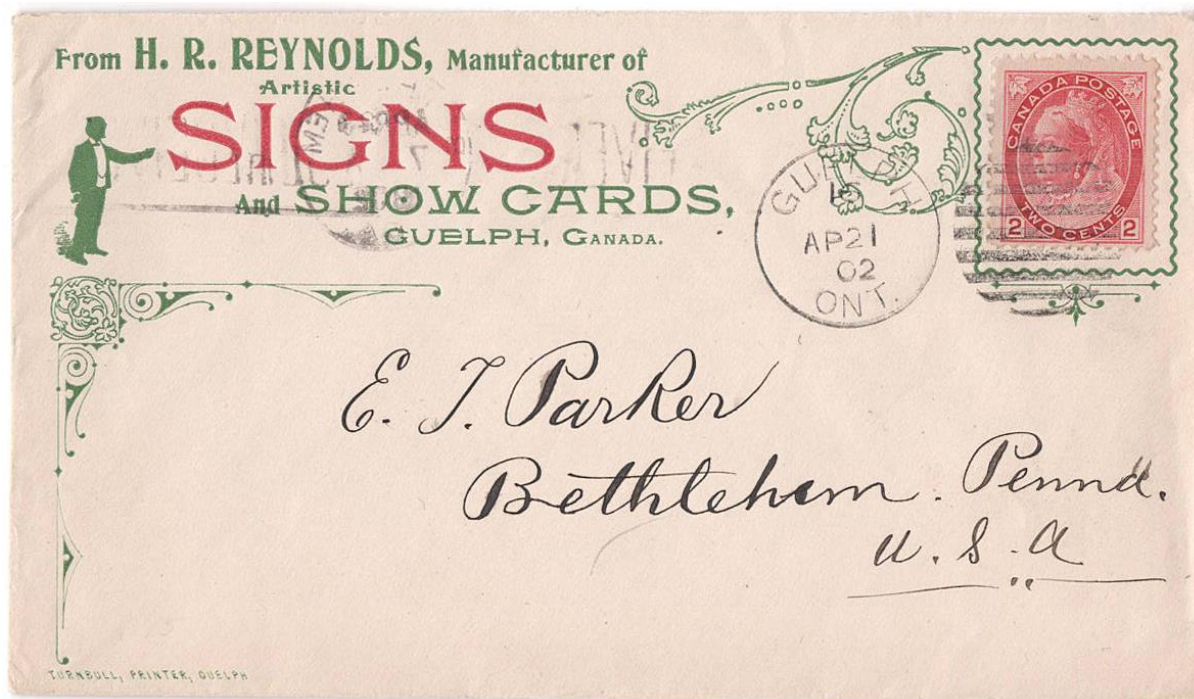 From H. R. REYNOLDS, Manufacturer of
Artistic
SIGNS
And SHOW CARDS,
GUELPH, CANADA.
CANADA POSTAGE
2 TWO CENTS 2
15
AP21
02
ONT.
E. T. Parker
Bethlehem. Penna.
U. S. A
TURNBULL, PRINTER, GUELPH